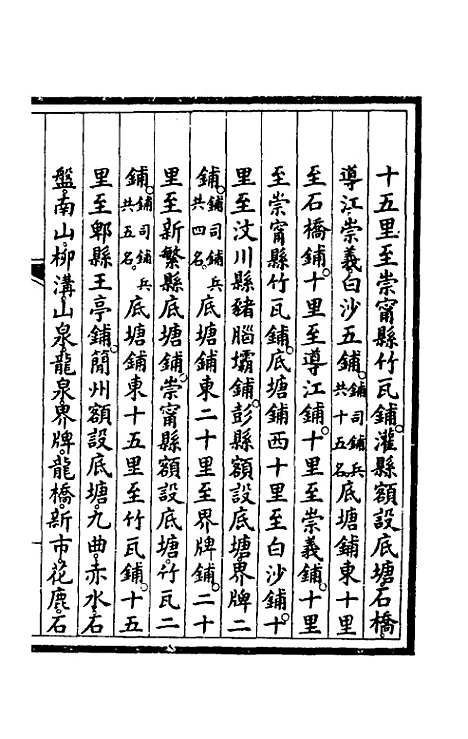 十五里至崇甯縣竹瓦鋪灌縣額設底塘石橋
導江崇義白沙五鋪鋪司鋪兵共十五名底塘鋪東十里
至石橋鋪十里至導江鋪十里至崇義鋪十里
至崇甯縣竹瓦鋪底塘鋪西十里至白沙鋪十
里至汶川縣豬腦壩鋪彭縣額設底塘界牌二
鋪鋪司鋪兵共四名底塘鋪東二十里至界牌鋪二十
里至新繁縣底塘鋪崇甯縣額設底塘竹瓦二
鋪鋪司鋪兵共五名底塘鋪東十五里至竹瓦鋪十五
里至郫縣王亭鋪簡州額設底塘九曲赤水石
盤南山柳溝山泉龍泉界牌龍橋新市花鹿石